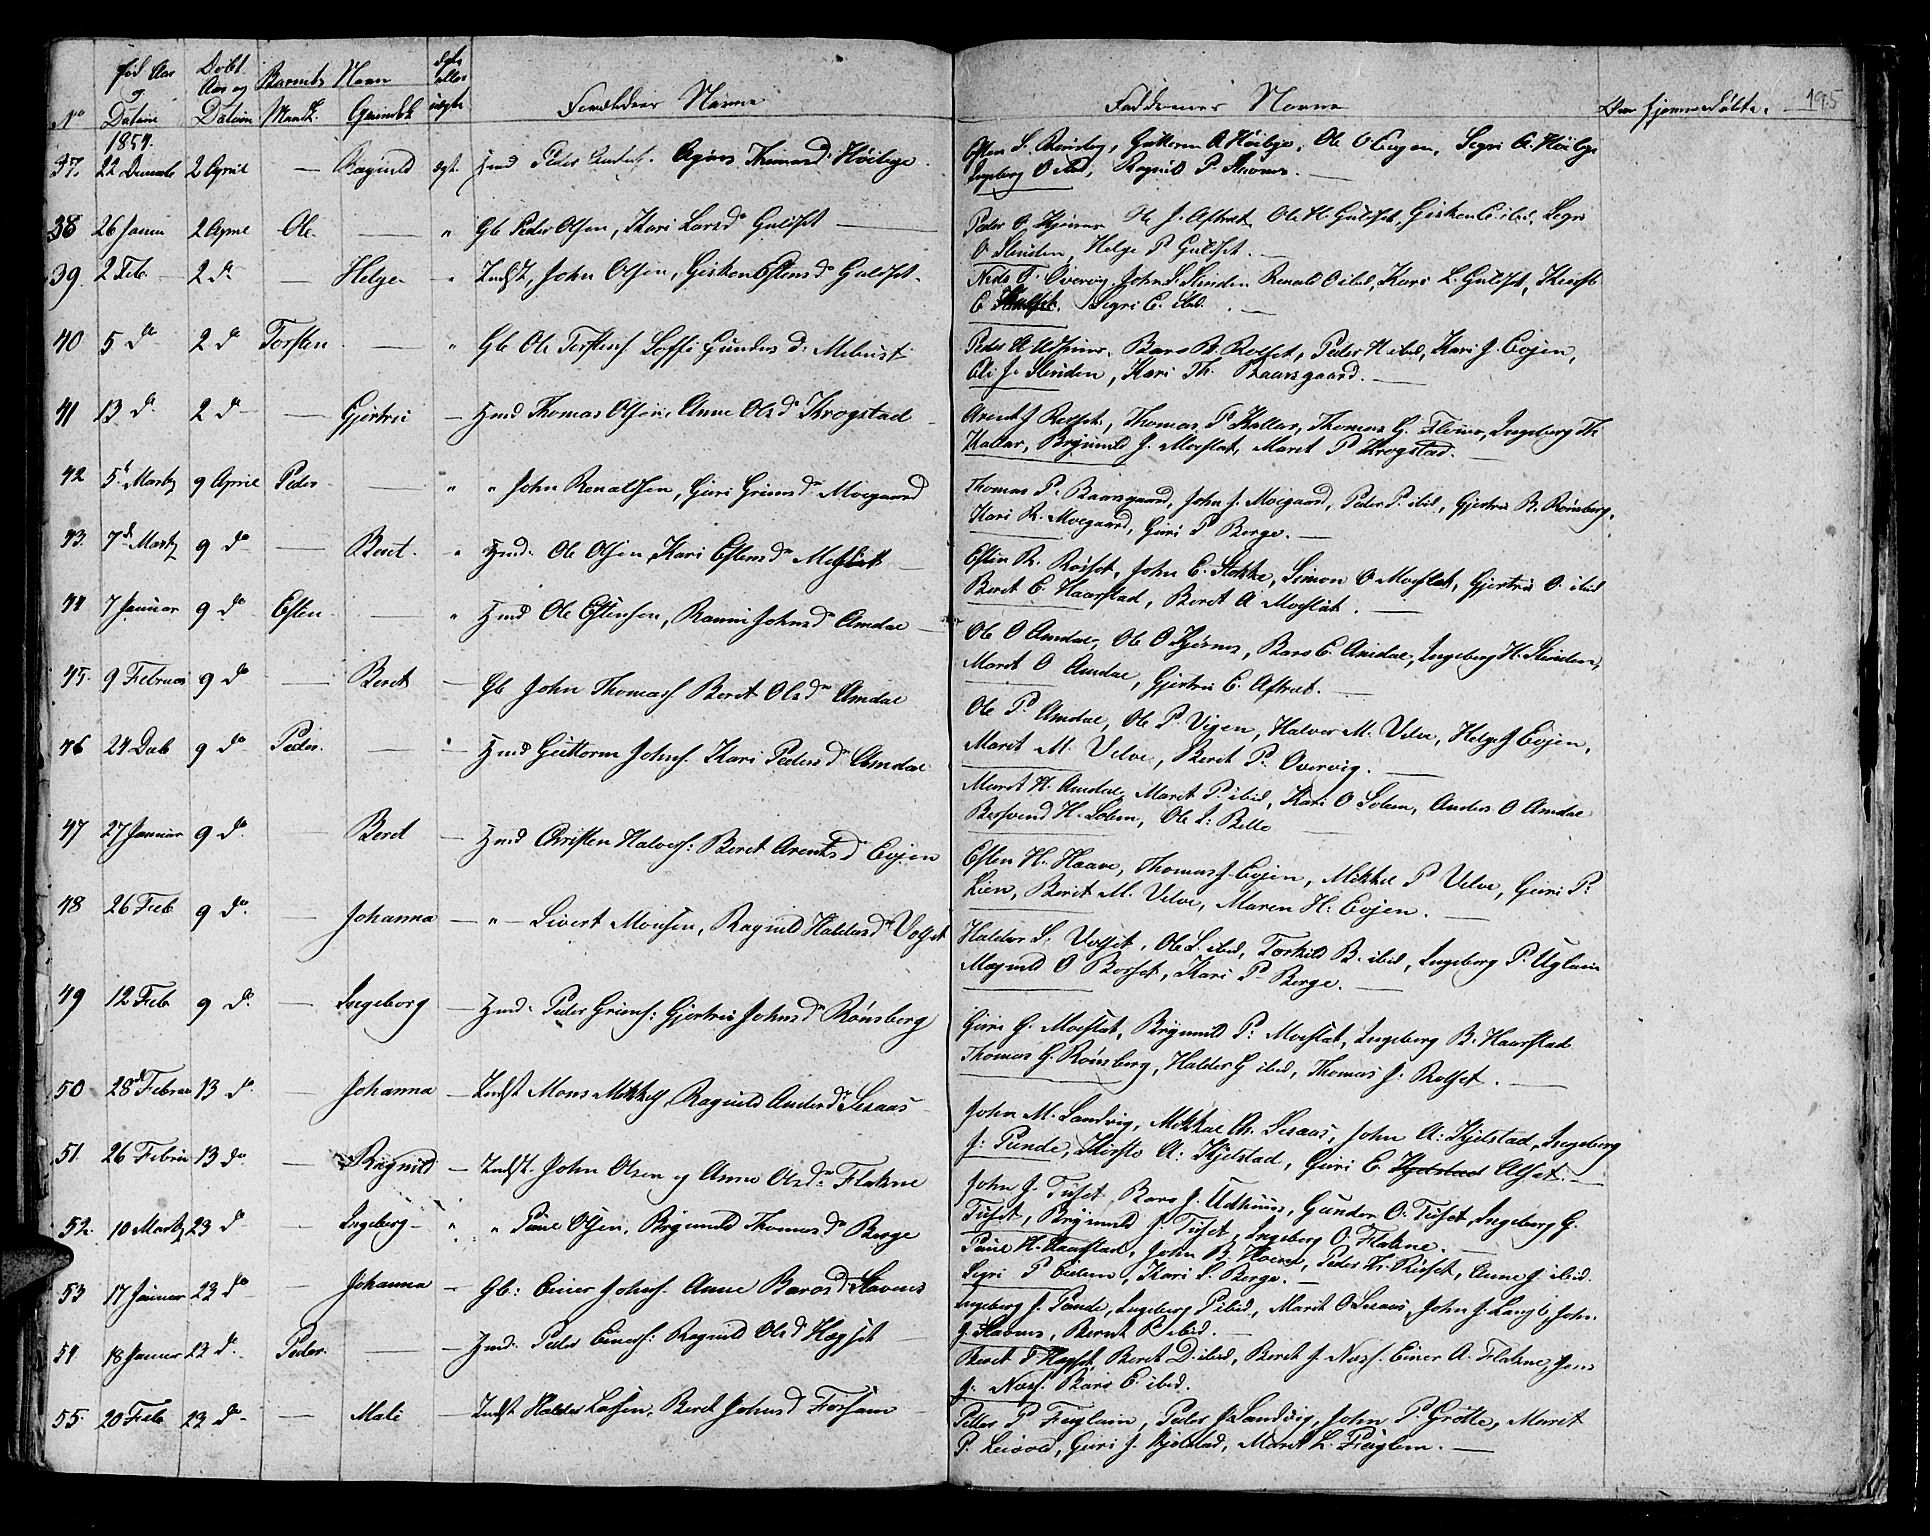 No
Fød Aar
og
Datum
Døbt
Aar og
Datum
Barnets Navn
Mandk.
Qvindek
Ægte
eller
uægte
Forældres Navne
Faddernes Navne
Om hjemmedøbte.
195
1854.
37. 22 Decemb 2 April — Ragnild Ægt. Hmd Peder Agnes Thomasd: Høibye
Esten S. Rønsberg, Guttorm A Høibye, Ole O Evjen, Segri A. Høibye
Ingeborg O ibid, Ragnild P. Stavnes. —
38 26 Janu 2 April Ole — " Gb Peder Olsen, Kari Larsdr Guldset —
Peder O. Kjøsnes Ole J. Aftret, Ole H. Guldset, Gisken E ibid, Segri
O. Slinden, Helge P. Guldset. —
39. 2 Feb. 2 do — Helge " Indst. John Olsen, Gisken Estensdr Guldset.
Nils O. Overvig, John S. Slinden Renald O ibid, Kari L. Guldset, Kirsti
E Guldset. Segri E. ibid. —
40 5 do 2 do Torsten — " Gb Ole Torstens. Soffi Gundersdr. Mebust
Peder H. Udhuus, Baro B. Rolset, Peder H ibid, Kari J. Evjen,
Eli J. Slinden, Kari Th. Baarsgaard. —
41 13 do 2 do — Gjertru — Hmd Thomas Olsen, Anne Olsdr Krogstad
Arent J. Rolset, Thomas T. Kallar, Thomas G. Flønes, Ingeborg Th.
Kallar, Brynild J. Morslet, Maret P Krogstad. —
42 5t Martz 9 April Peder — " " John Renaldsen, Guri Grimsdr. Moegaard
Thomas P. Baarsgaard, John J. Moegaard, Peder P. ibid, Gjertru B. Rønsberg,
Kari R. Moegaard, Guri P Berge. —
43. 7d Martz 9 do — Beret. " Hmd. Ole Olsen, Kari Estensdr Morslet —
Esten R. Rolset, John E. Stokke, Simon O Morslet, Gjertru O. ibid
Beret E. Haarstad, Beret A Morslet. —
44 7 Januar 9 do Esten — " Hmd Ole Estensen, Ranni Johnsdr Amdal —
Ole O Amdal, Ole O Kjøsnes, Baro E. Amdal, Ingeborg H. Slinden,
Maret O Amdal, Gjertru E. Aftret. —
45. 9 Februar 9 do — Beret — Gb John Thomass. Beret Olsdr Amdal
Ole P. Amdal, Ole P. Vigen, Halvor M. Velve, Helge J Evjen,
Marit M. Velve, Beret P. Overvig. —
46 24 Deb 9 do Peder. — " Hmd Guttorm Johns. Kari Pedersdr Amdal
Maret H. Amdal, Maret P. ibid, Kari O Solem, Anders O Amdal
Bersvend H. Solem, Ole S: Bello —
47 27 Januar 9 do. — Beret — Hmd Christen Halvors: Beret Arentsd. Evjen
Esten H. Haave, Thomas J. Evjen, Mikkel P Velve, Guri P.
Lien, Beret M. Velve, Maren H: Evjen. —
48 26 Feb 9 do. — Johanna — " — Sivert Monsen, Ragnild Haldorsdr Volset
Haldor S. Volset, Ole S. ibid, Torkild B. ibid, Ingeborg P. Uglem
Magnild O Borset, Kari P. Berge. —
49 12 Feb 9 do. — Ingeborg — Hmd. Peder Grims: Gjertru Johnsdr Rønsberg
Guri G. Morslet, Brynnild P. Morslet, Ingeborg B. Haarstad
Thomas G. Rønsberg, Haldor G ibid, Thomas J. Rolset. —
50 28d Februar 13 do. — Johanna — Indst Mons Mikkels. Ragnild Andersdr Sesaas
John M. Sandvig, Mikkel A. Sesaas, John A: Kjelstad, Ingeborg
J: Tunde, Kirsto A: Kjelstad, Guri E. Kjelstad Alset. —
51. 26 Februar 13 do. — Ragnild — Indst. John Olsen og Anne Olsdr. Flakne
John J. Tuset, Baro J. Udhuus, Gunder O. Tuset, Ingeborg G.
Tuset, Brynnild J. Tuset, Ingeborg O. Flakne. —
52. 10 Martz 23 do — Ingeborg — " " Paul Olsen, Brynnild Thomasdr Berge
Paul H. Haarstad, John B. Moene, Peder Th. Rolset, Anne J. ibid.
Segri P Eidem, Kari S. Berge. —
53 17 Januar 23 do — Johanna — Gb: Einer Johns. Anne Barosd: Stavnes
Ingeborg J. Tunde, Ingeborg P ibid, Marit O Sesaas, John J. Langli, John.
J. Stavnes, Bernt P. ibid. —
54. 18 Januar 23 do. Peder. — Hmd. Peder Einers: Ragnild Olsd Hægset —
Beret P Hægset, Beret D. ibid, Beret J. Næss. Einer A. Flakne, Jens
J. Næss. Baro E. ibid.
55. 20 Feb 23 do. — Mali — Indst Haldor Larsen, Beret Johnsd Forsem
Peder P Fuglem, Peder J. Sandvig, John P. Grøtte, Marit
P. Leivold, Guri J. Kjelstad, Maret L. Fuglem. —